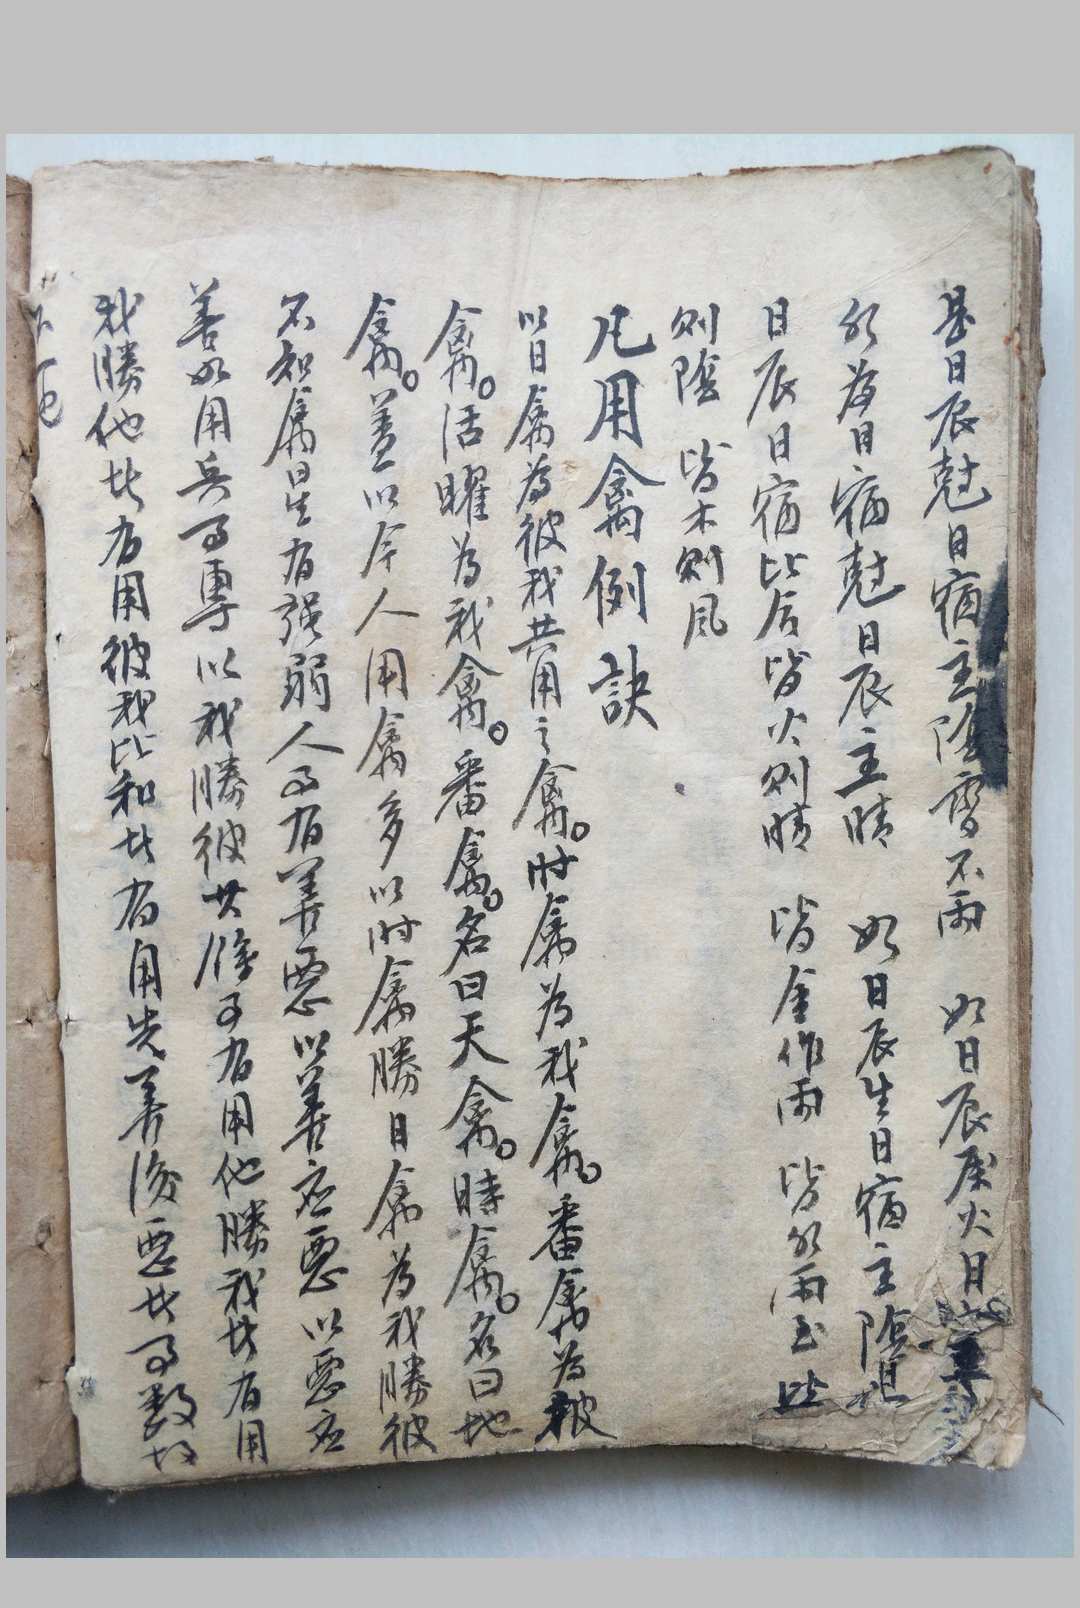 甚日辰尅日宿主陰雲不雨 如日辰属火日
水為日宿尅日辰主晴 如日辰生日宿主陰
日辰日宿比合皆火則晴 皆金作雨 皆水雨至 皆
則陰 皆木則风
凡用禽例訣
以日禽為彼我共用之禽。时禽為我禽。番禽為彼
禽。活曜為我禽。番禽。名曰天禽。時禽。名曰地
禽。盖以今人用禽多以时禽勝日禽為我勝彼
不知禽星有强弱人事有善惡以善应惡以惡应
善如用兵事專以我勝彼其條子有用他勝我者有用
我勝他者有用彼我比和者有用先善後惡者事数